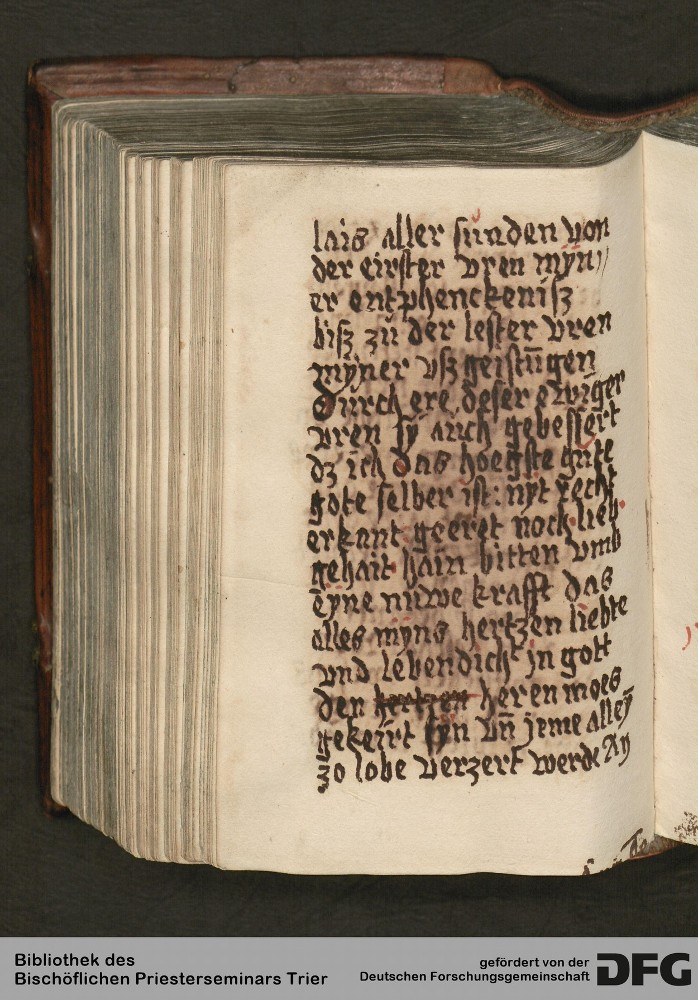 lais aller sunden von
der eirster vren myn//
er entphenckenisz
bisz zů der lester vren
myner vsz geistūgen
Durch ere deser ewiger
vren sy auch gebessert
dz ich das hoegste gute
gote selber ist: nyt recht
erkant geeret noch lieb
gehait hain bitten vmb
eyne nuwe krafft das
alles myns hertzen liebte
vnd lebendich jn gott
den hertzen heren moes
gekeirt syn vn̄ jeme alleȳ
zo lobe verzert werde Aȳ
Bibliothek des
Bischöflichen Priesterseminars Trier
gefördert von der
Deutschen Forschungsgemeinschaft
DFG